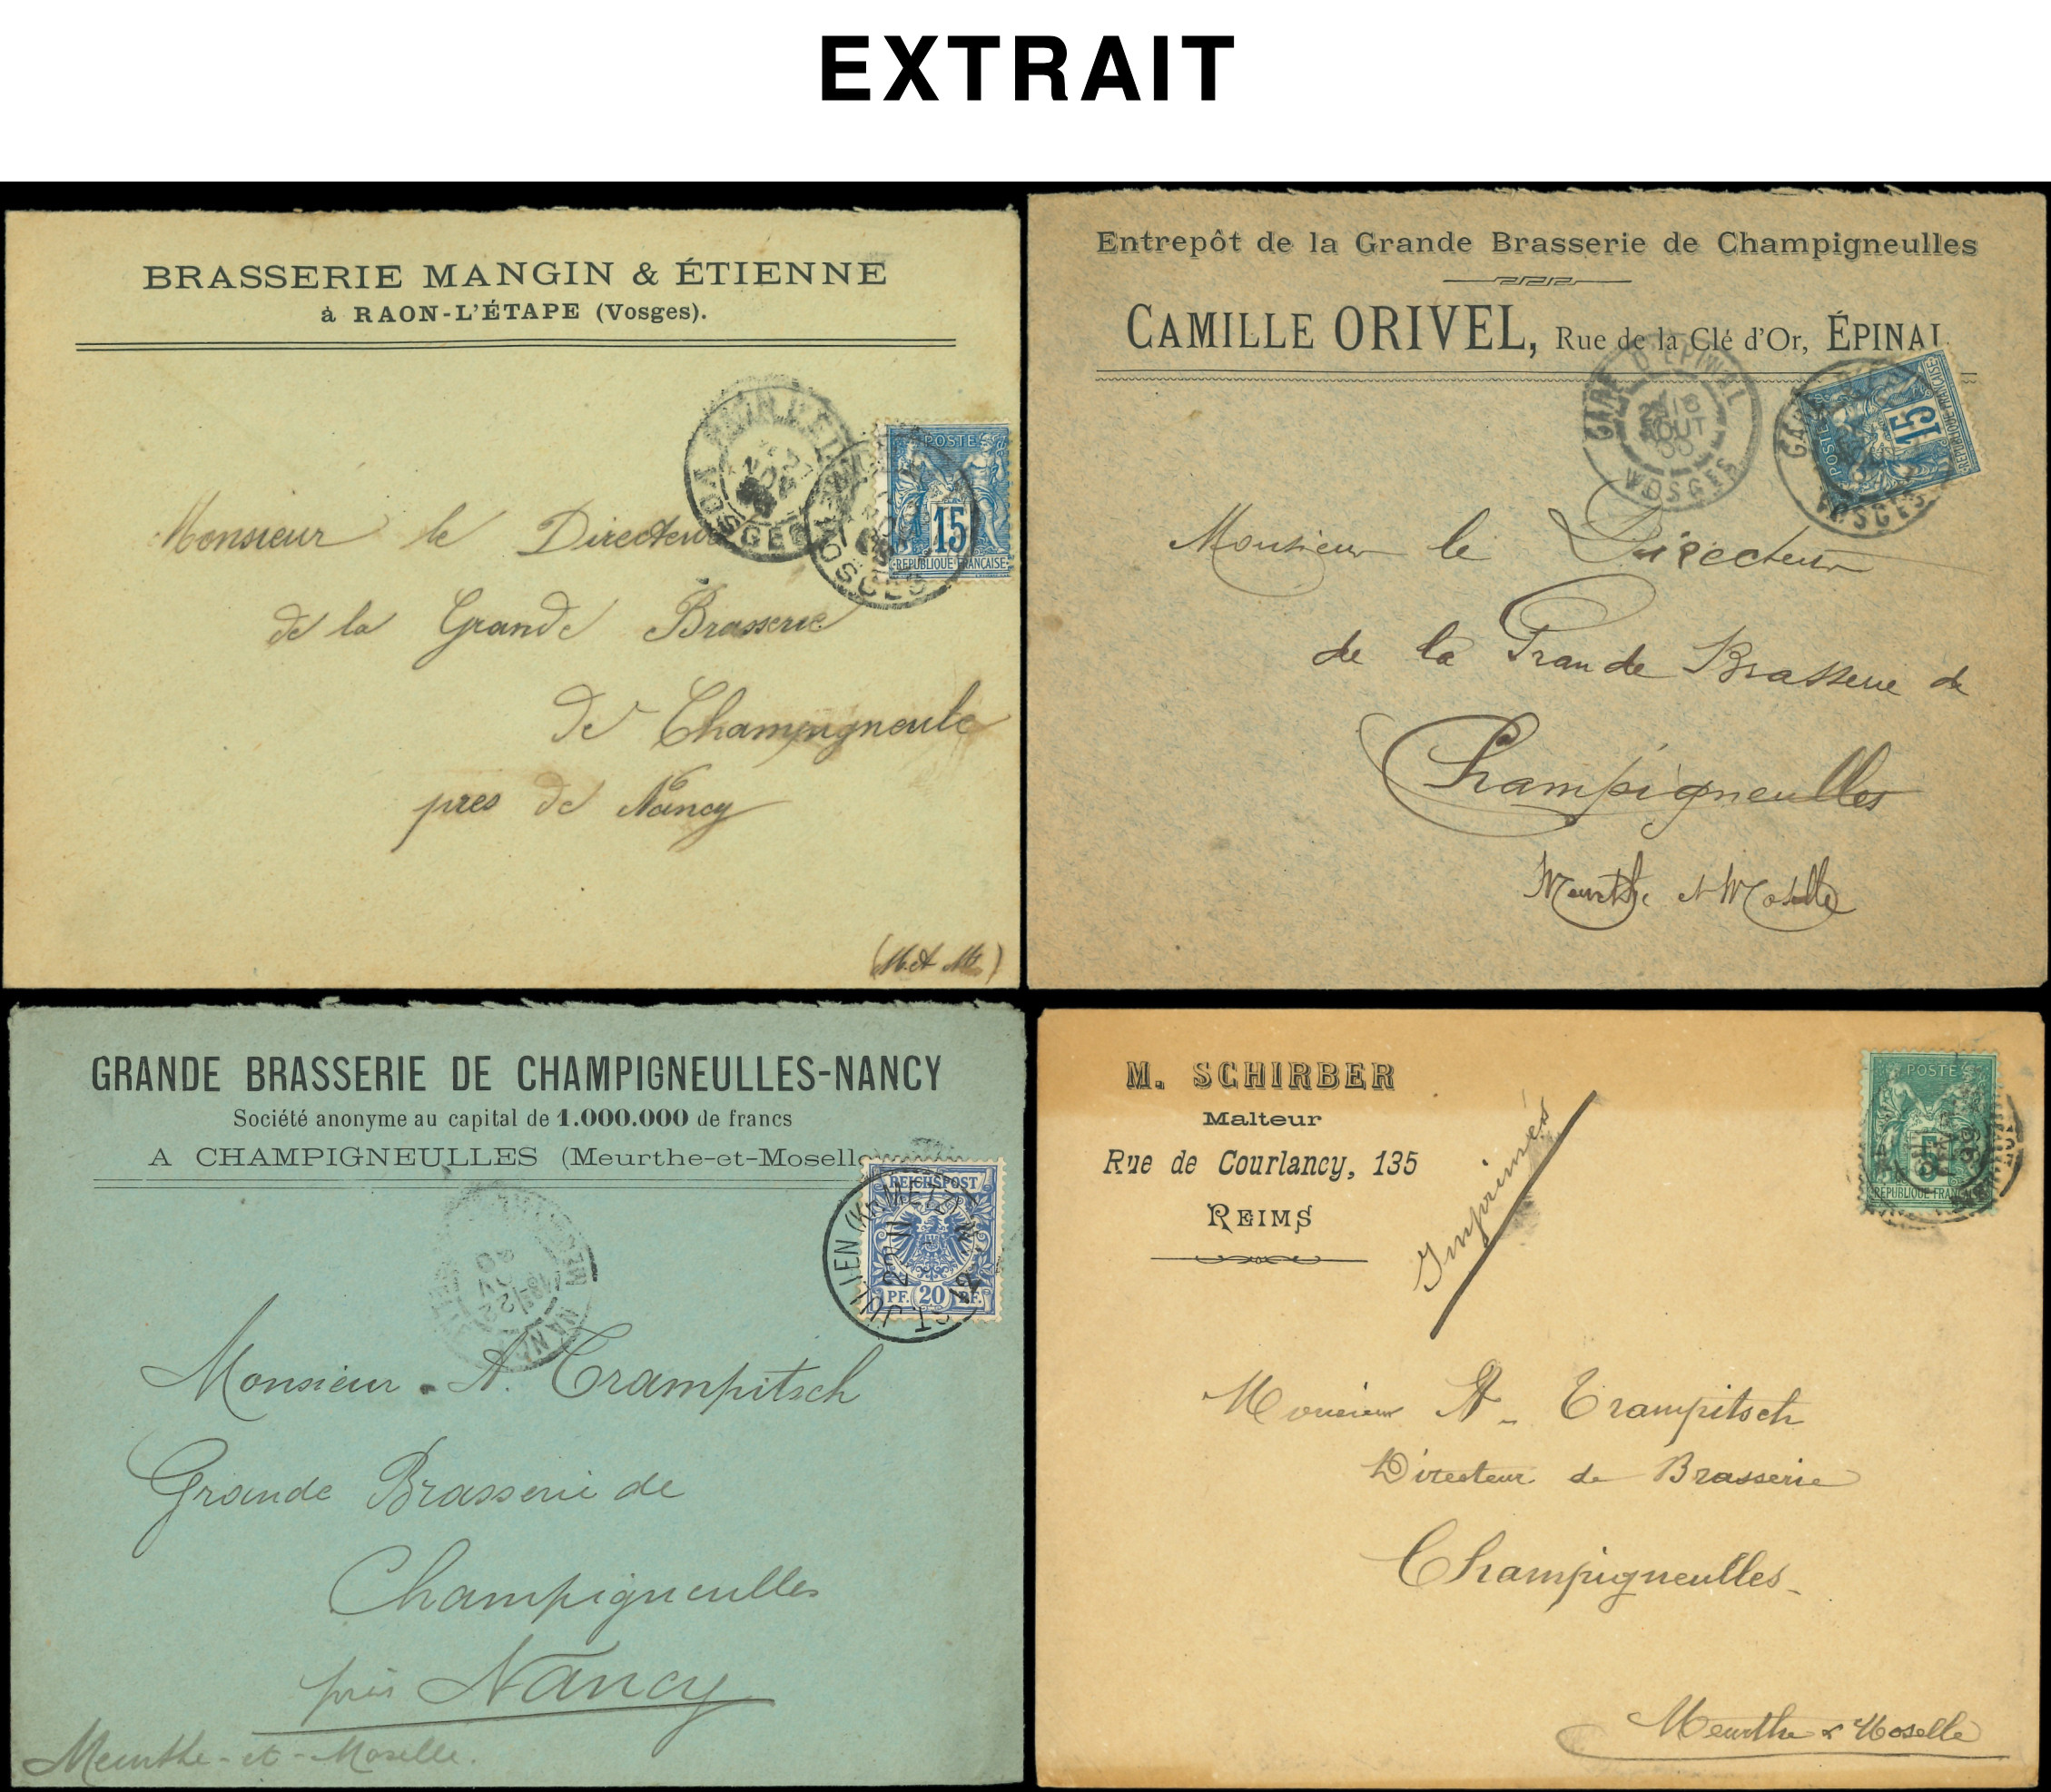 EXTRAIT
BRASSERIE MANGIN & ÉTIENNE
à RAON-L'ÉTAPE (Vosges).
POSTES
15
REPUBLIQUE FRANÇAISE
VOSGES
Monsieur le Directeur
de la Grande Brasserie
de Champigneule
pres de Nancy
(M. et M.)
Entrepôt de la Grande Brasserie de Champigneulles
CAMILLE ORIVEL, Rue de la Clé d'Or, ÉPINAL
GARE D'EPINAL
AOUT
VOSGES
POSTES
15
REPUBLIQUE FRANÇAISE
GARE
VOSGES
Monsieur le Directeur
de la Grande Brasserie de
Champigneulles
Meurthe et Moselle
GRANDE BRASSERIE DE CHAMPIGNEULLES-NANCY
Société anonyme au capital de 1.000.000 de francs
A CHAMPIGNEULLES (Meurthe-et-Moselle
REICHSPOST
PF. 20 PF.
ST JULIEN (KR METZ)
Monsieur A. Trampitsch
Grande Brasserie de
Champigneulles
près Nancy
Meurthe-et-Moselle.
M. SCHIRBER
Malteur
Rue de Courlancy, 135
REIMS
Imprimés
POSTES
5
REPUBLIQUE FRANÇAISE
Monsieur A. Trampitsch
Directeur de Brasserie
Champigneulles
Meurthe & Moselle